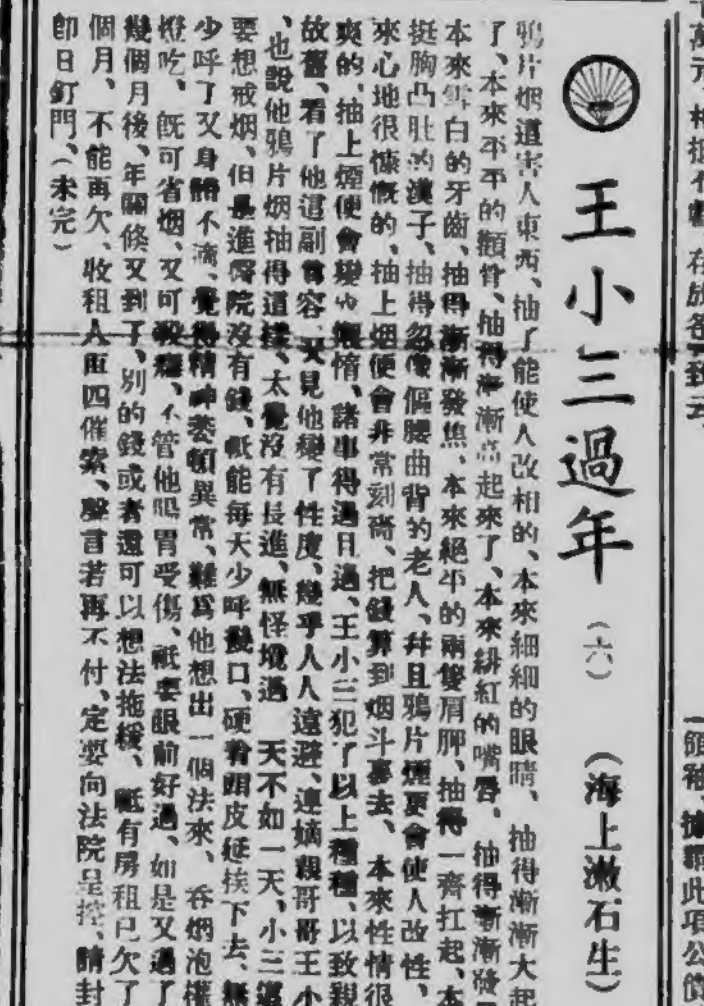 王小三過年 （六） （海上漱石生）
鴉片烟這害人東西、抽了能使人改相的、本來細細的眼睛、抽得漸漸大起
了、本來平平的顴骨、抽得漸漸高起來了、本來緋紅的嘴唇、抽得漸漸發
本來雪白的牙齒、抽得漸漸發焦、本來絕平的兩隻肩胛、抽得一齊扛起、本
挺胸凸肚的漢子、抽得忽像傴腰曲背的老人、幷且鴉片煙更會使人改性、
來心地很慷慨的、抽上烟便會非常刻嗇、把錢算到烟斗裏去、本來性情很
爽的、抽上煙便會變成懶惰、諸事得過且過、王小三犯了以上種種、以致親
故舊、看了他這副賫容、又見他變了性度、幾乎人人遠避、連嫡親哥哥王小
、也說他鴉片烟抽得這樣、太覺沒有長進、無怪境遇一天不如一天、小三這
要想戒烟、但是進醫院沒有錢、祇能每天少呼幾口、硬着頭皮延挨下去、無
少呼了又身體不適、覺得精神萎頓異常、難爲他想出一個法來、吞烟泡權
燈吃、旣可省烟、又可殺癮、不管他腸胃受傷、祇要眼前好過、如是又過了
幾個月後、年關倏又到了、別的錢或者還可以想法拖緩、祇有房租已欠了
個月、不能再欠、收租人再四催索、聲言若再不付、定要向法院呈控、請封
卽日釘門、（未完）
領袖、據聞此項公債